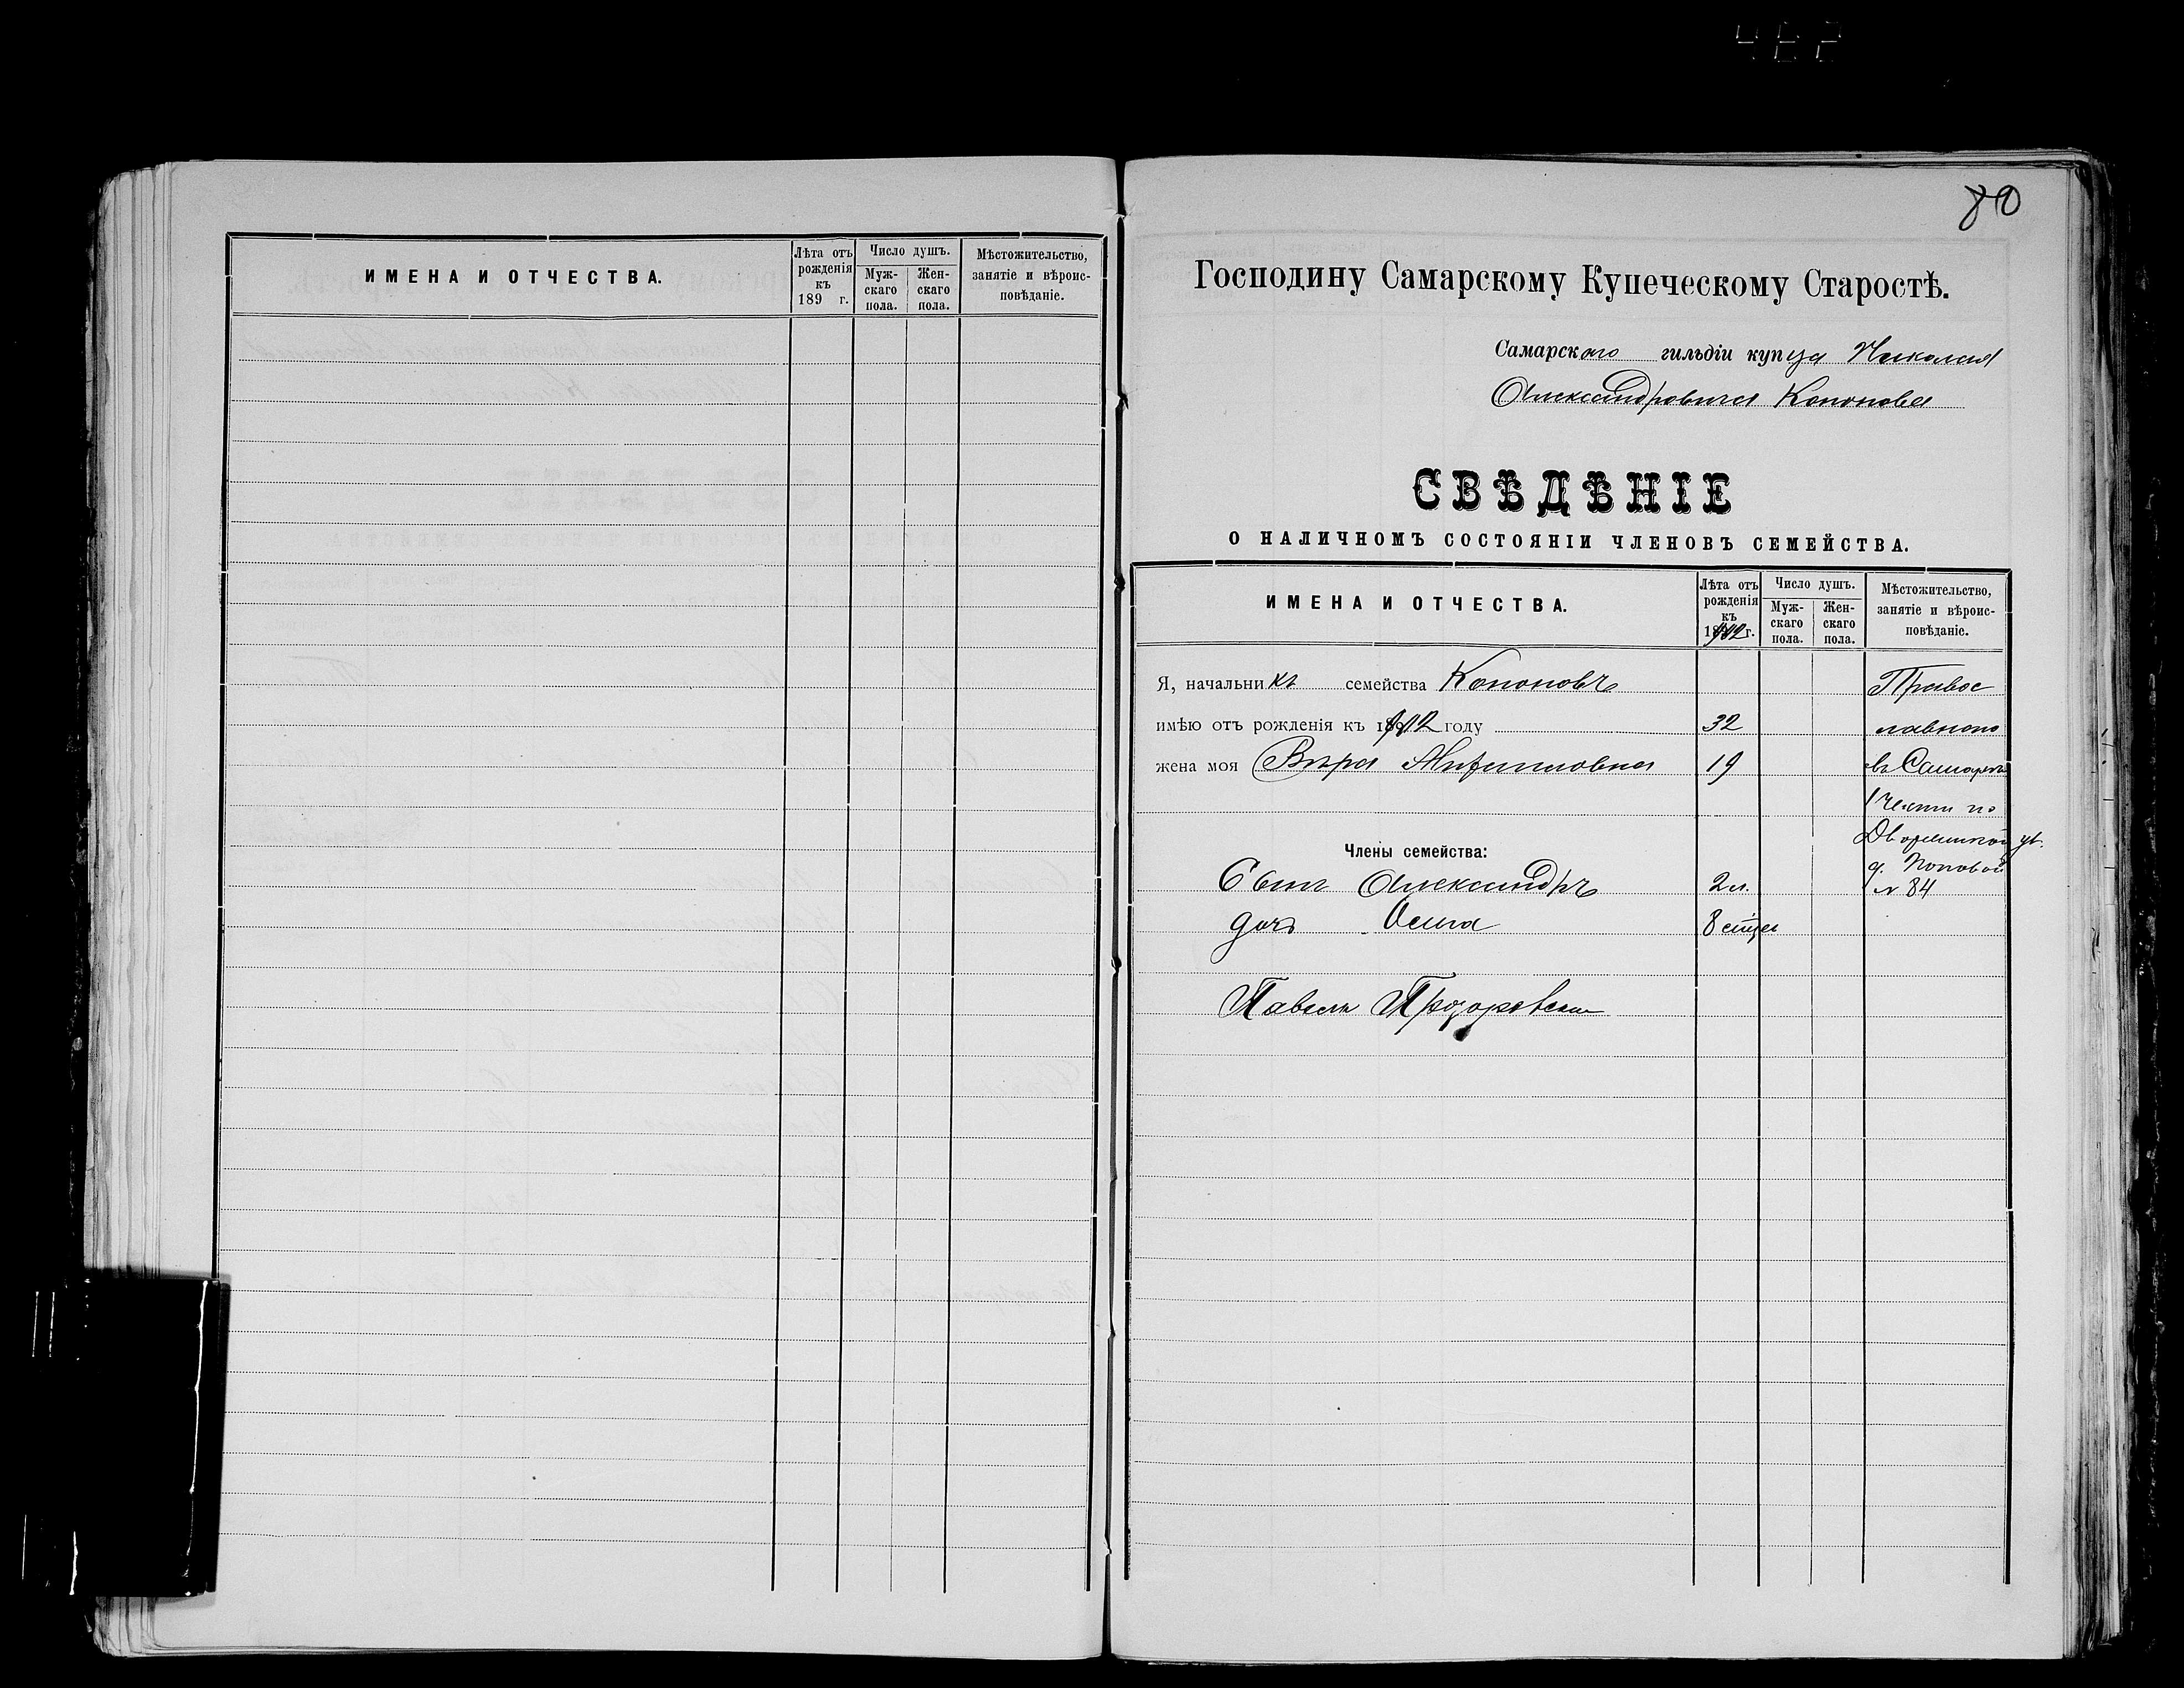 ИМЕНА И ОТЧЕСТВА.
Лѣта отъ рожденія къ 189 г.
Число душъ.
Мужскаго пола.
Женскаго пола.
Мѣстожительство, занятіе и вѣроисповѣданіе.
80
Господину Самарскому Купеческому Старостѣ.
Самарскаго гильдіи купца Николая
Александровича Кононова
СВѢДѢНІЕ
О НАЛИЧНОМЪ СОСТОЯНІИ ЧЛЕНОВЪ СЕМЕЙСТВА.
ИМЕНА И ОТЧЕСТВА.
Лѣта отъ рожденія къ 1912 г.
Число душъ.
Мужскаго пола.
Женскаго пола.
Мѣстожительство, занятіе и вѣроисповѣданіе.
Я, начальникъ семейства Кононовъ Правос
имѣю отъ рожденія къ 1912 году 32 лавного
жена моя Вѣра 19 въ Самарѣ
1 части по
Дворянской ул.
Члены семейства:
д. Поповой
Сынъ Александръ 2 л. № 84
дочь 8
Павелъ